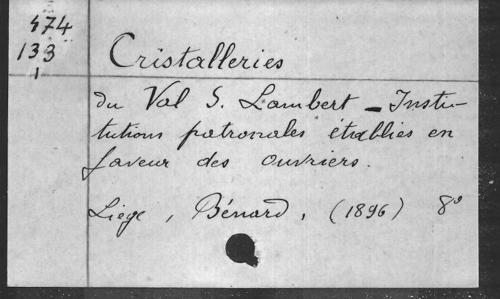 474
133
1
Cristalleries
du Val S. Lambert - Insti-
tutions patronales établies en
faveur des ouvriers.
Liège, Bénard, (1896) 8°